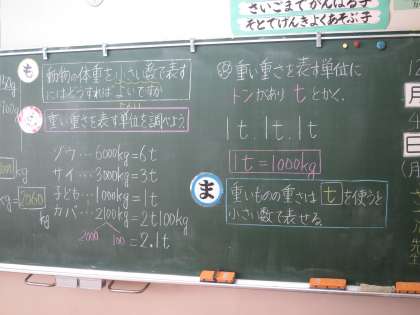 さいごまでがんばる子
そとでげんきよくあそぶ子
も
動物の体重を小さい数で表す
にはどうすればよいですか
重い重さを表す単位を調べよう。
ゾウ…6000kg=6t
サイ…3000kg=3t
子ども…1000kg=1t
カバ…2100kg=2t100kg
2000 100
=2.1t
kg=2060
kg
重い重さを表す単位に
トンがあり t とかく。
1t.1t.1t
1t=1000kg
ま
重いものの重さは t を使うと
小さい数で表せる。
12
月
4
日
(月